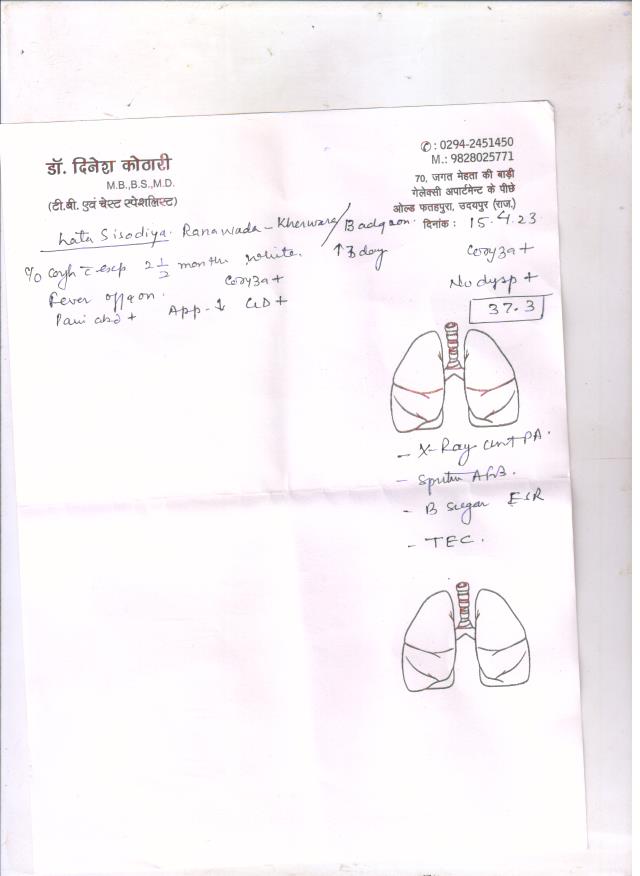 डॉ. दिनेश कोठारी
M.B.,B.S.,M.D.
(टी.बी. एवं चेस्ट स्पेशलिस्ट)
✆: 0294-2451450
M.: 9828025771
70, जगत मेहता की बाड़ी
गेलेक्सी अपार्टमेन्ट के पीछे
ओल्ड फतहपुरा, उदयपुर (राज.)
दिनांक: 15.4.23
Lata Sisodiya. Ranawada - Kherwara / Badgaon.
c/o Cough c exp 2 1/2 months white. ↑ 3 day
Coryza +
Fever off & on. Coryza +
No dysp +
Pain abd + App - ↓ GD +
37.3
- X-Ray chest PA.
- Sputum AFB.
- B sugar ESR
- TEC.